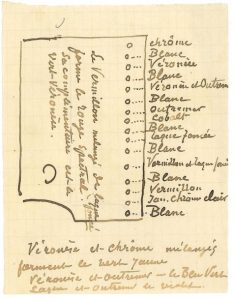 Le Vermillon mélangé de laque
forme le rouge spectral. rouge
sa complémentaire est le
vert-Véronèse.
chrôme
Blanc
Véronèse
Blanc
Véronèse et Outrem
Blanc
outremer
cobalt
Blanc
laque foncée
Blanc
Vermillon et laque foncée
Blanc
Vermillon
Jau. Chrôm clair
Blanc
Véronèse et chrôme mélangés
forment le vert jaune
Véronèse et outremer — le Bleu Vert
Laque et outremer le violet.